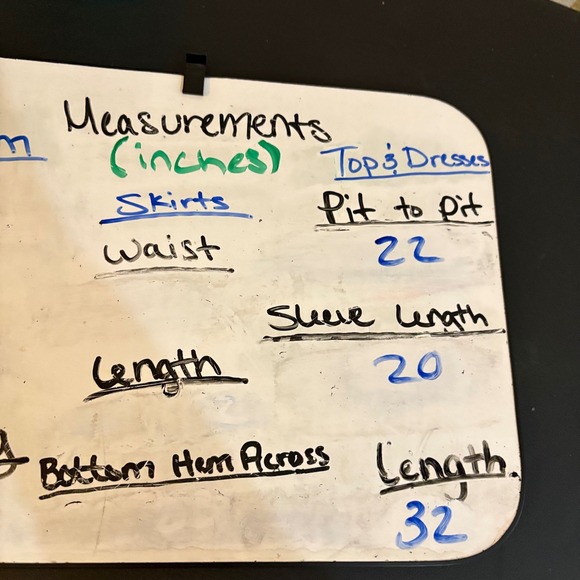 Measurements
(inches)
m
Skirts
Waist
Length
Bottom Hem Across
Top & Dresses
Pit to Pit
22
Sleeve Length
20
Length
32